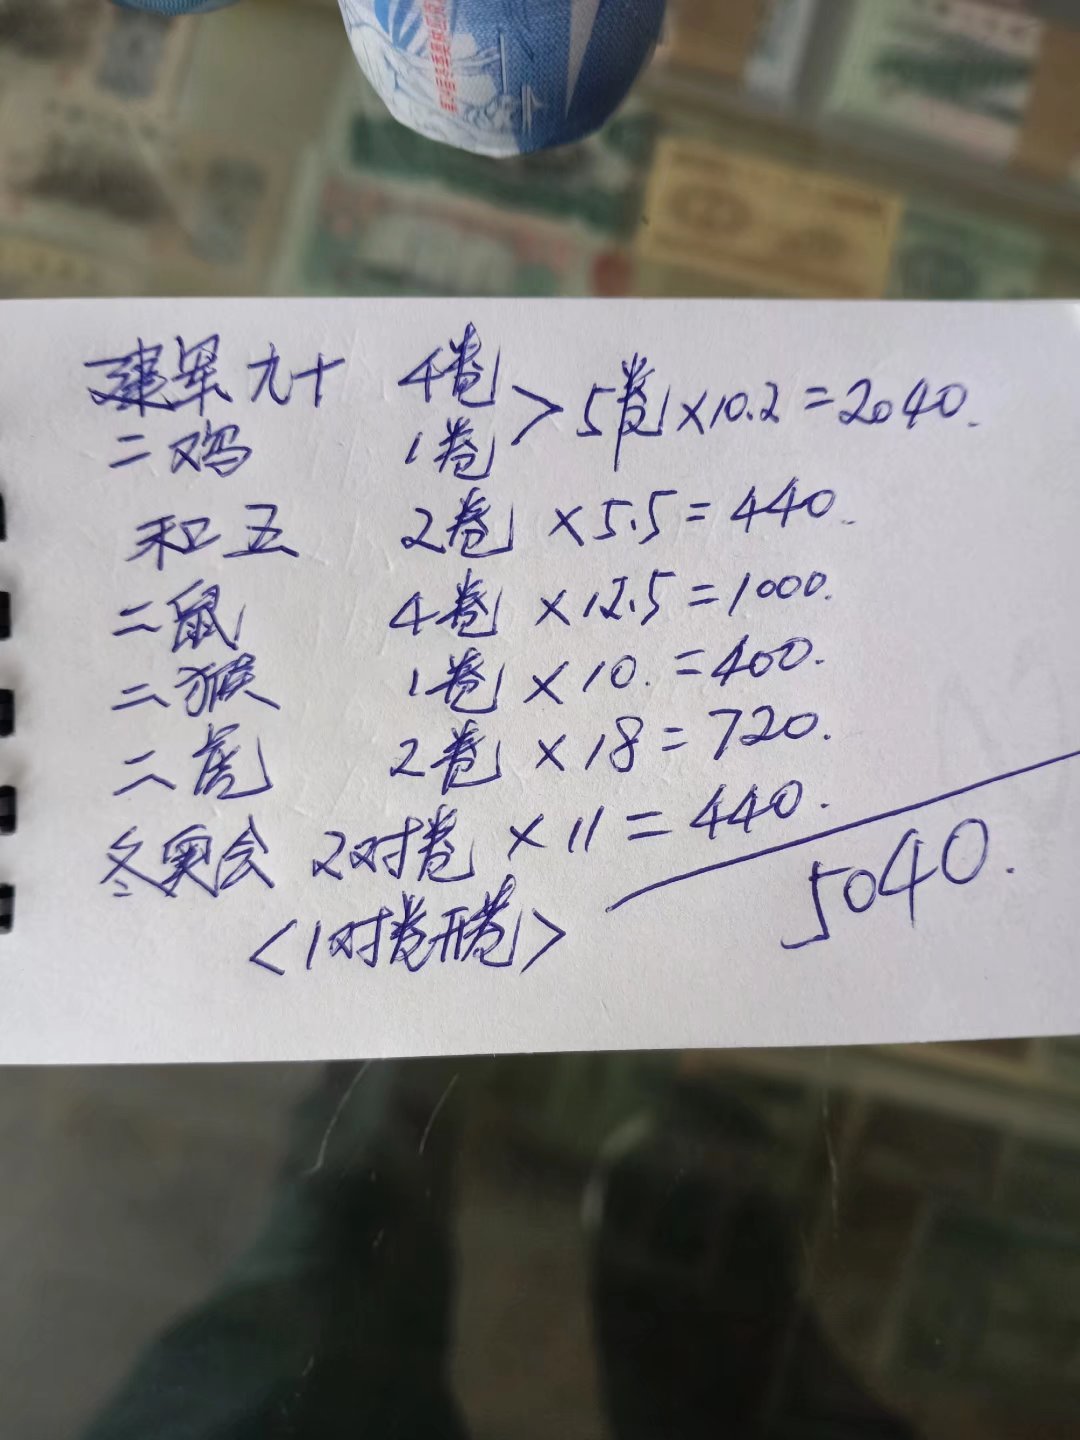 建军九十 4卷 > 5卷×10.2=2040.
二鸡 1卷
和五 2卷 ×5.5=440.
二鼠 4卷 ×12.5=1000.
二猴 1卷 ×10.=400.
二虎 2卷 ×18=720.
冬奥会 2对卷 ×11=440.
<1对卷开卷>
5040.